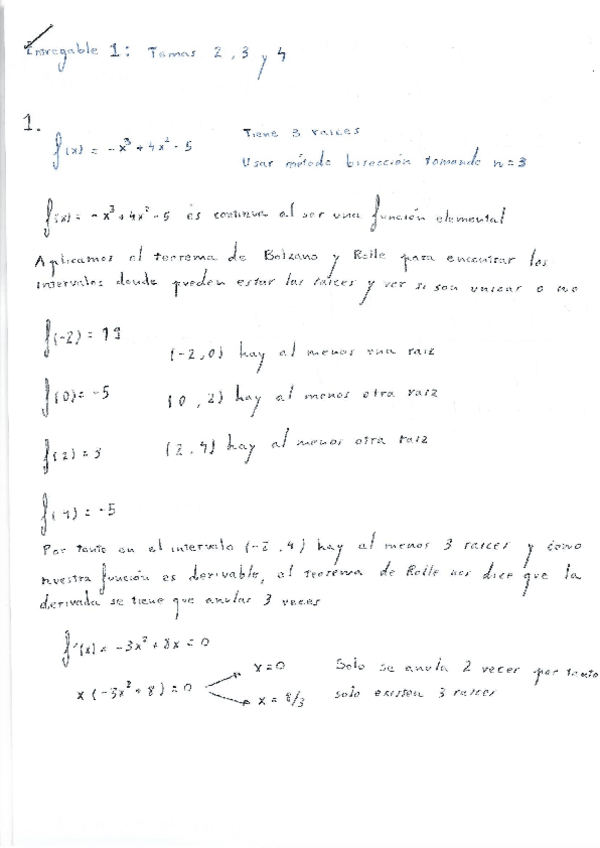 Entregable 1: Temas 2, 3 y 4
1.
f(x) = -x³ + 4x² - 5
Tiene 3 raices
Usar método bisección tomando n=3
f(x) = -x³ + 4x² - 5 es continua al ser una función elemental
Aplicamos el teorema de Bolzano y Rolle para encontrar los
intervalos donde pueden estar las raices y ver si son unicas o no
f(-2) = 19
(-2,0) hay al menos una raiz
f(0) = -5
(0,2) hay al menos otra raiz
f(2) = 3
(2,4) hay al menos otra raiz
f(4) = -5
Por tanto en el intervalo (-2,4) hay al menos 3 raices y como
nuestra función es derivable, el teorema de Rolle nos dice que la
derivada se tiene que anular 3 veces
f'(x) = -3x² + 8x = 0
x(-3x² + 8) = 0
x = 0
x = 8/3
Solo se anula 2 veces por tanto
solo existen 3 raices